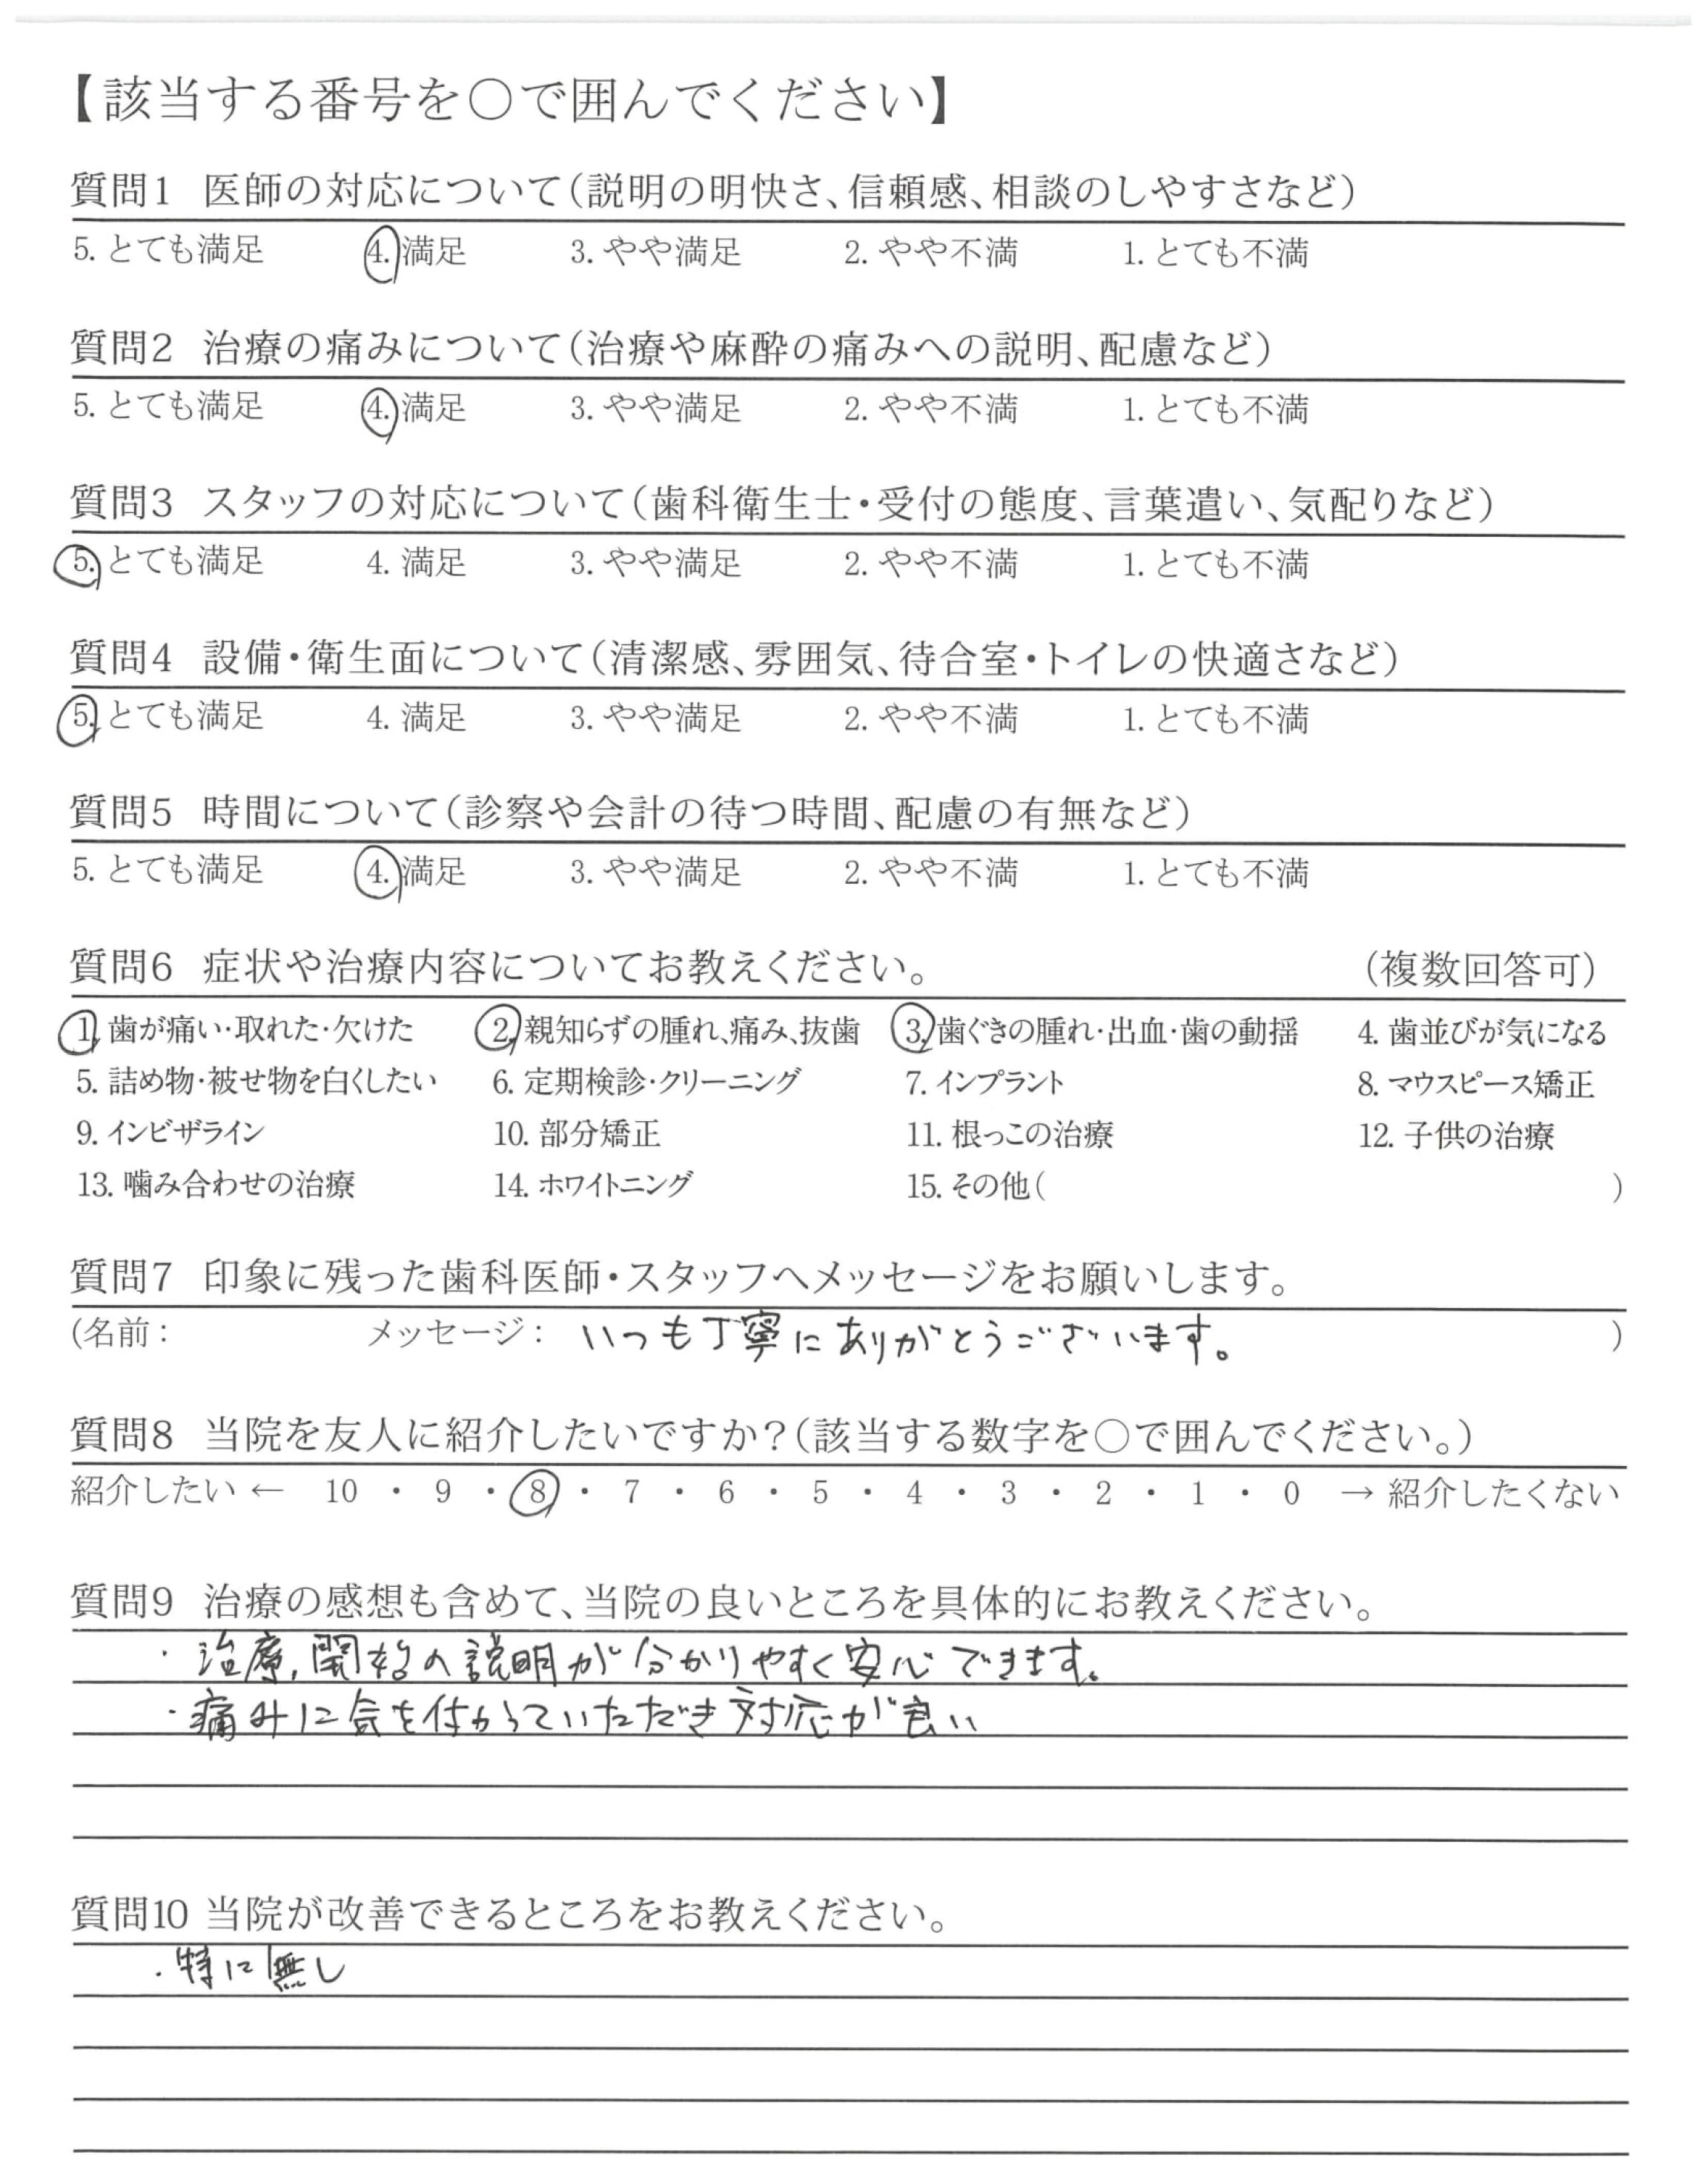 【該当する番号を○で囲んでください】
質問1 医師の対応について(説明の明快さ、信頼感、相談のしやすさなど)
5. とても満足 4. 満足 3. やや満足 2. やや不満 1. とても不満
質問2 治療の痛みについて(治療や麻酔の痛みへの説明、配慮など)
5. とても満足 4. 満足 3. やや満足 2. やや不満 1. とても不満
質問3 スタッフの対応について(歯科衛生士・受付の態度、言葉遣い、気配りなど)
5. とても満足 4. 満足 3. やや満足 2. やや不満 1. とても不満
質問4 設備・衛生面について(清潔感、雰囲気、待合室・トイレの快適さなど)
5. とても満足 4. 満足 3. やや満足 2. やや不満 1. とても不満
質問5 時間について(診察や会計の待つ時間、配慮の有無など)
5. とても満足 4. 満足 3. やや満足 2. やや不満 1. とても不満
質問6 症状や治療内容についてお教えください。 (複数回答可)
1. 歯が痛い・取れた・欠けた 2. 親知らずの腫れ、痛み、抜歯 3. 歯ぐきの腫れ・出血・歯の動揺 4. 歯並びが気になる
5. 詰め物・被せ物を白くしたい 6. 定期検診・クリーニング 7. インプラント 8. マウスピース矯正
9. インビザライン 10. 部分矯正 11. 根っこの治療 12. 子供の治療
13. 噛み合わせの治療 14. ホワイトニング 15. その他( )
質問7 印象に残った歯科医師・スタッフへメッセージをお願いします。
(名前: メッセージ: いつも丁寧にありがとうございます。 )
質問8 当院を友人に紹介したいですか?(該当する数字を○で囲んでください。)
紹介したい ← 10 ・ 9 ・ 8 ・ 7 ・ 6 ・ 5 ・ 4 ・ 3 ・ 2 ・ 1 ・ 0 → 紹介したくない
質問9 治療の感想も含めて、当院の良いところを具体的にお教えください。
・治療,開始の説明が分かりやすく安心できます。
・痛みに気を付かっていただき対応が良い
質問10 当院が改善できるところをお教えください。
・特に無し